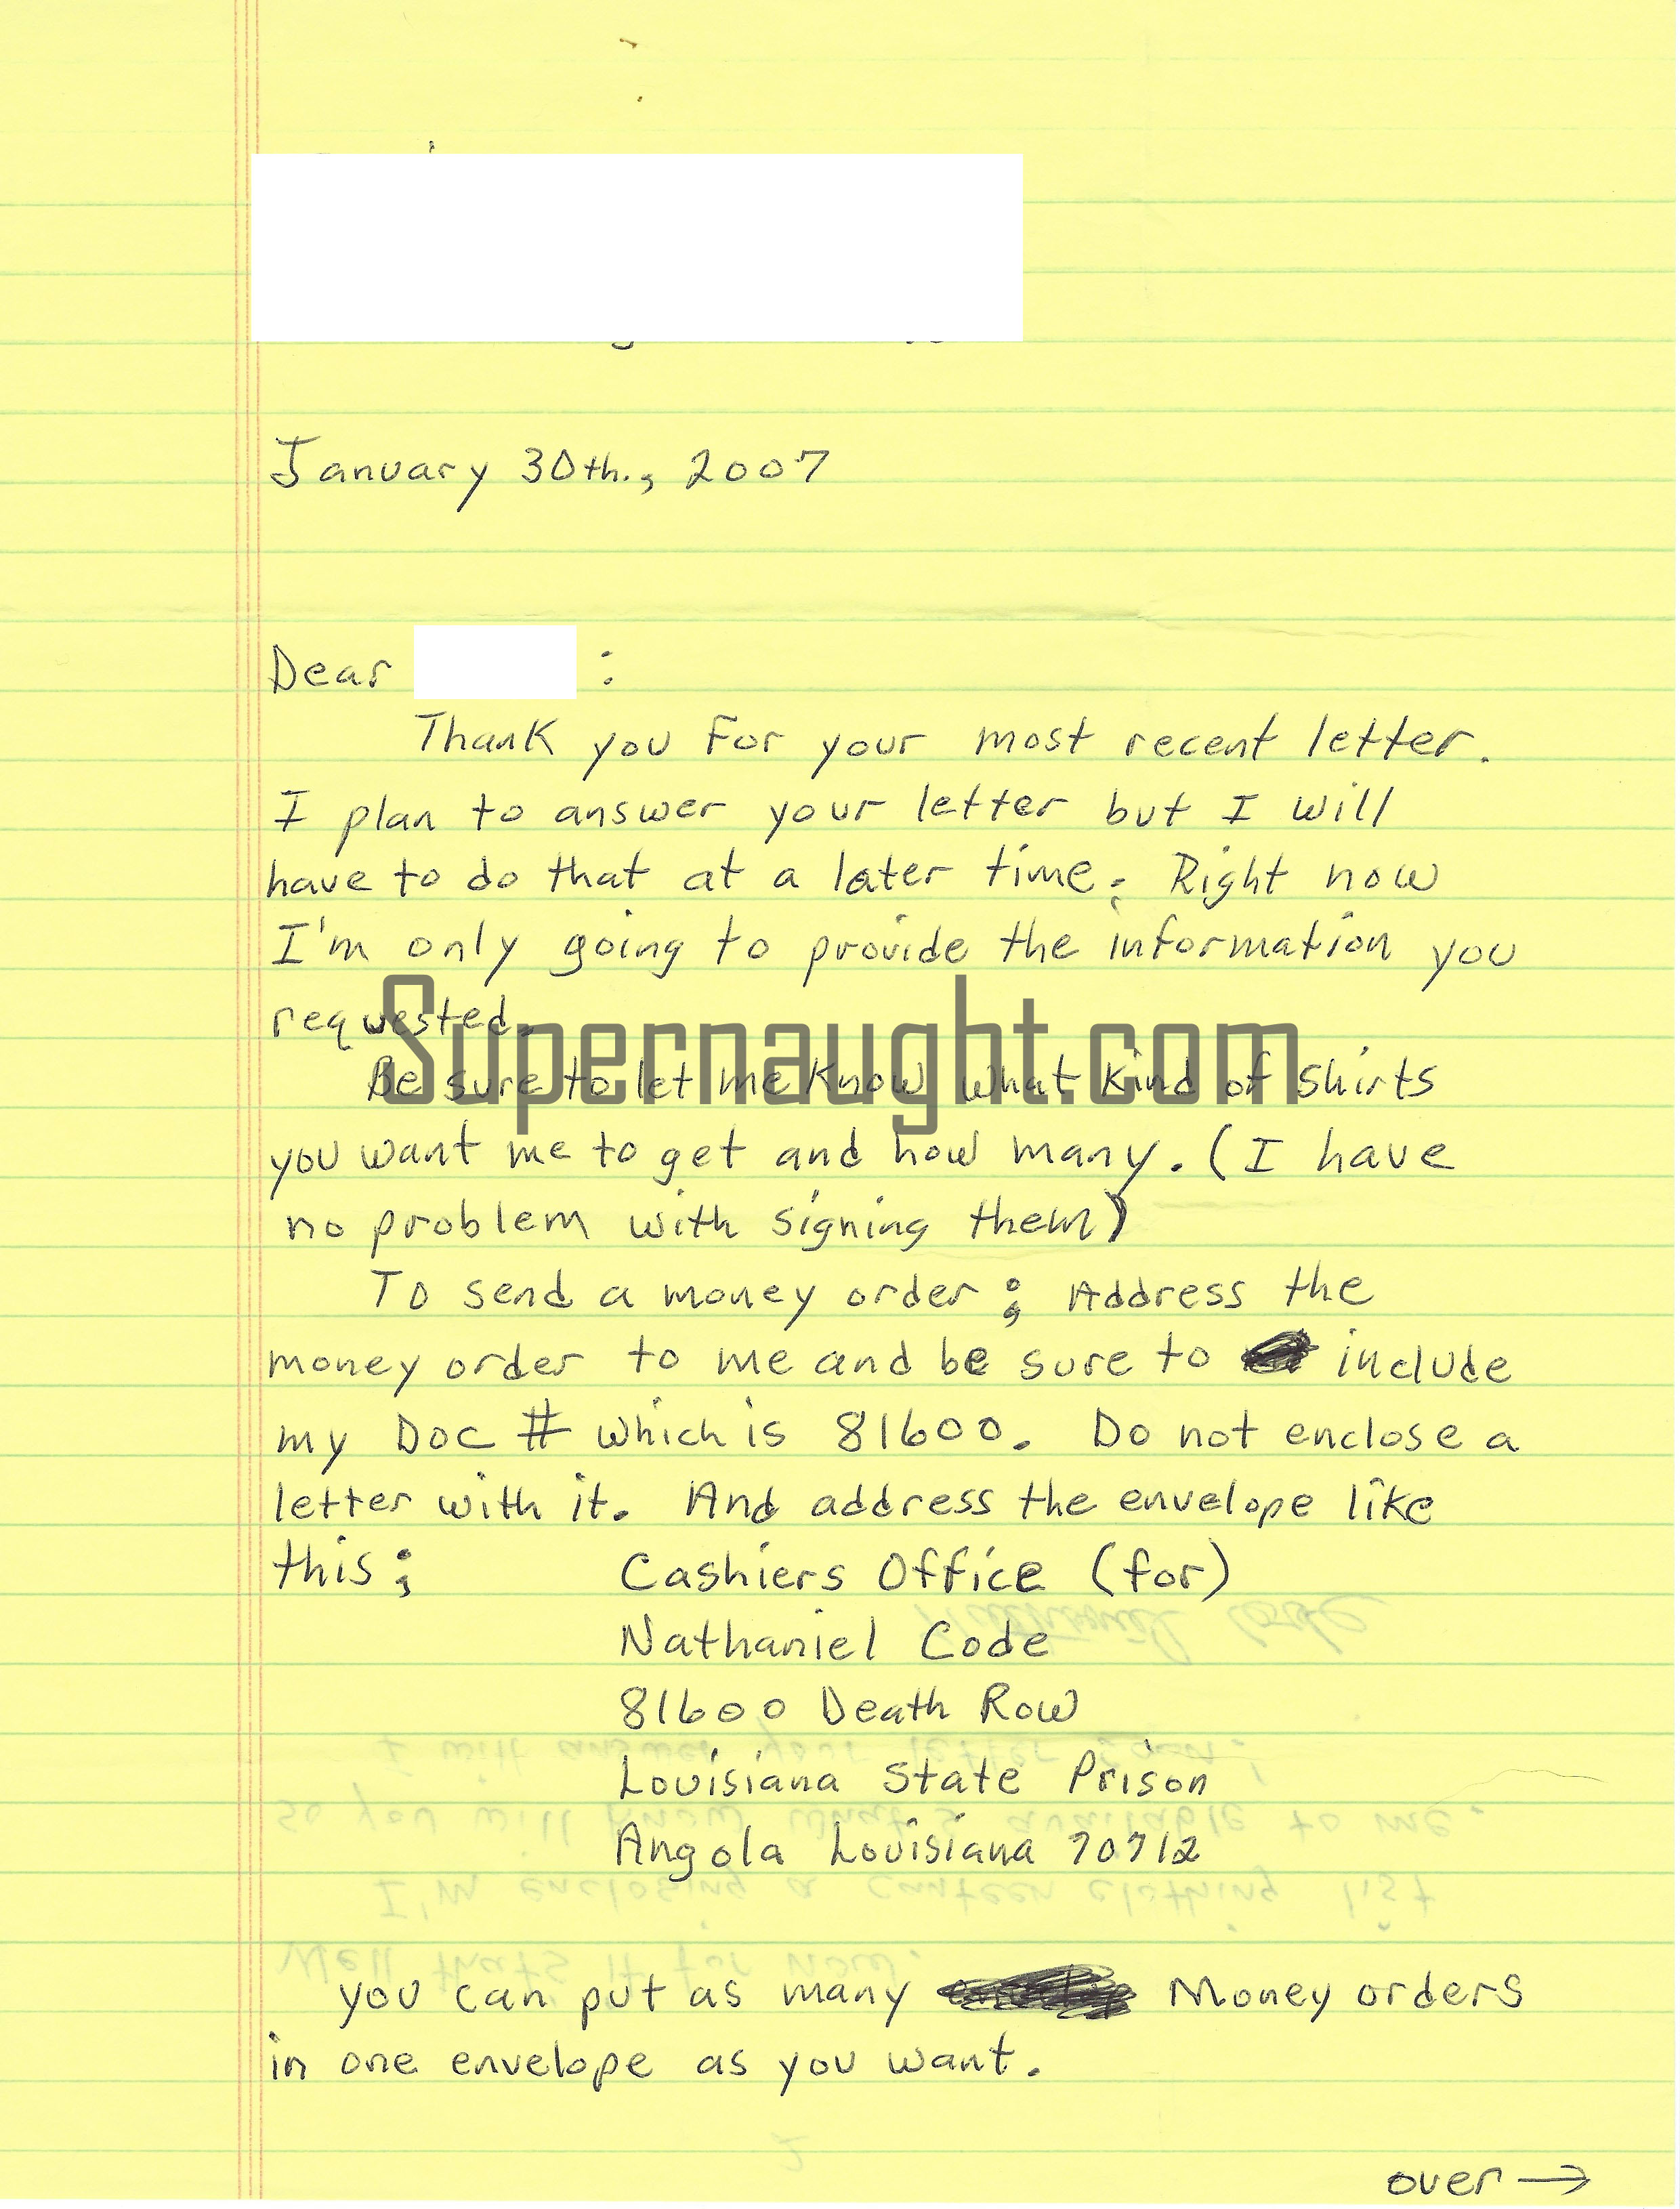 January 30th., 2007
Dear :
Thank you for your most recent letter.
I plan to answer your letter but I will
have to do that at a later time. Right now
I'm only going to provide the information you
requested.
Supernaught.com
Be sure to let me know what kind of shirts
you want me to get and how many. (I have
no problem with signing them)
To send a money order ; Address the
money order to me and be sure to include
my DOC # which is 81600. Do not enclose a
letter with it. And address the envelope like
this ; Cashiers Office (for)
Nathaniel Code
81600 Death Row
Louisiana State Prison
Angola Louisiana 70712
you can put as many Money orders
in one envelope as you want.
over →